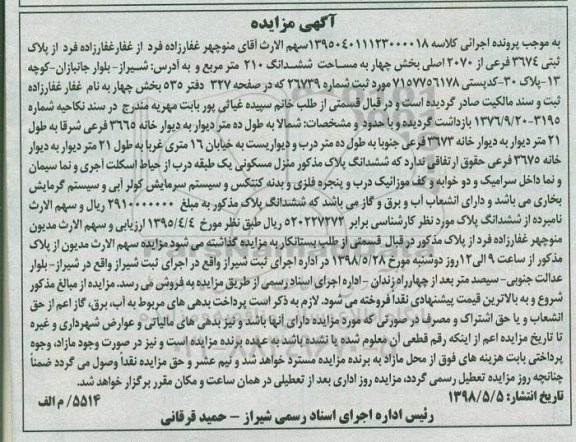 آگهی مزایده
به موجب پرونده اجرائی کلاسه ۱۳۹۵۰۴۰۱۱۱۲۳۰۰۰۰۱۸سهم الارث آقای منوچهر غفارزاده فرد از غفارغفارزاده فرد از پلاک
ثبتی ۳۶۷۴ فرعی از ۲۰۷۰ اصلی بخش چهار به مساحت ششدانگ ۲۱۰ متر مربع و به آدرس: شیراز- بلوار جانبازان-کوچه
۱۳-پلاک ۳۰-کدپستی ۷۱۵۷۷۵۶۱۷۸ مورد ثبت شماره ۲۶۷۳۹ که در صفحه ۳۲۷ دفتر ۵۳۵ بخش چهار به نام غفار غفارزاده
ثبت و سند مالکیت صادر گردیده است و در قبال قسمتی از طلب خانم سپیده غیاثی پور بابت مهریه مندرج در سند نکاحیه شماره
۳۱۹۵-۱۳۷۶/۹/۲۰ بازداشت گردیده و با حدود و مشخصات: شمالا به طول ده متر دیوار به دیوار خانه ۳۶۶۵ فرعی شرقا به طول
۲۱ متر دیوار به دیوار خانه ۳۶۷۳ فرعی جنوبا به طول ده متر درب و دیواریست به خیابان ۱۶ متری غربا به طول ۲۱ متر دیوار به دیوار
خانه ۳۶۷۵ فرعی حقوق ارتفاقی ندارد که ششدانگ پلاک مذکور منزل مسکونی یک طبقه درب از حیاط اسکلت آجری و نما سیمان
و نما داخل سرامیک و دو خوابه و کف موزائیک درب و پنجره فلزی و بدنه کنتکس و سیستم سرمایش کولر آبی و سیستم گرمایش
بخاری می باشد و دارای انشعاب آب و برق و گاز می باشد که ششدانگ پلاک مذکور به مبلغ ۲۹۱۰۰۰۰۰۰۰ ریال و سهم الارث
نامبرده از ششدانگ پلاک مورد نظر کارشناسی برابر ۵۲۰۲۲۷۲۷۲ ریال طبق نظر مورخ ۱۳۹۵/۴/۴ ارزیابی و سهم الارث مدیون
منوچهر غفارزاده فرد از پلاک مذکور در قبال قسمتی از طلب بستانکار به مزایده گذاشته می شود مزایده سهم الارث مدیون از پلاک
مذکور از ساعت ۹ الی ۱۲ روز دوشنبه مورخ ۱۳۹۸/۵/۲۸ در اداره اجرای ثبت شیراز واقع در اجرای ثبت شیراز واقع در شیراز- بلوار
عدالت جنوبی- سیصد متر بعد از چهارراه زندان - اداره اجرای اسناد رسمی از طریق مزایده به فروش می رسد. مزایده از مبالغ مذکور
شروع و به بالاترین قیمت پیشنهادی نقدا فروخته می شود. لازم به ذکر است پرداخت بدهی های مربوط به آب، برق، گاز اعم از حق
انشعاب و یا حق اشتراک و مصرف در صورتی که مورد مزایده دارای آنها باشد و نیز بدهی های مالیاتی و عوارض شهرداری و غیره
تا تاریخ مزایده اعم از اینکه رقم قطعی آن معلوم شده یا نشده باشد به عهده برنده مزایده است و نیز در صورت وجود مازاد، وجوه
پرداختی بابت هزینه های فوق از محل مازاد به برنده مزایده مسترد خواهد شد و نیم عشر و حق مزایده نقدا وصول می گردد ضمناً
چنانچه روز مزایده تعطیل رسمی گردد، مزایده روز اداری بعد از تعطیلی در همان ساعت و مکان مقرر برگزار خواهد شد.
تاریخ انتشار: ۱۳۹۸/۵/۵
۵۵۱۴/ م الف
رئیس اداره اجرای اسناد رسمی شیراز - حمید قرقانی